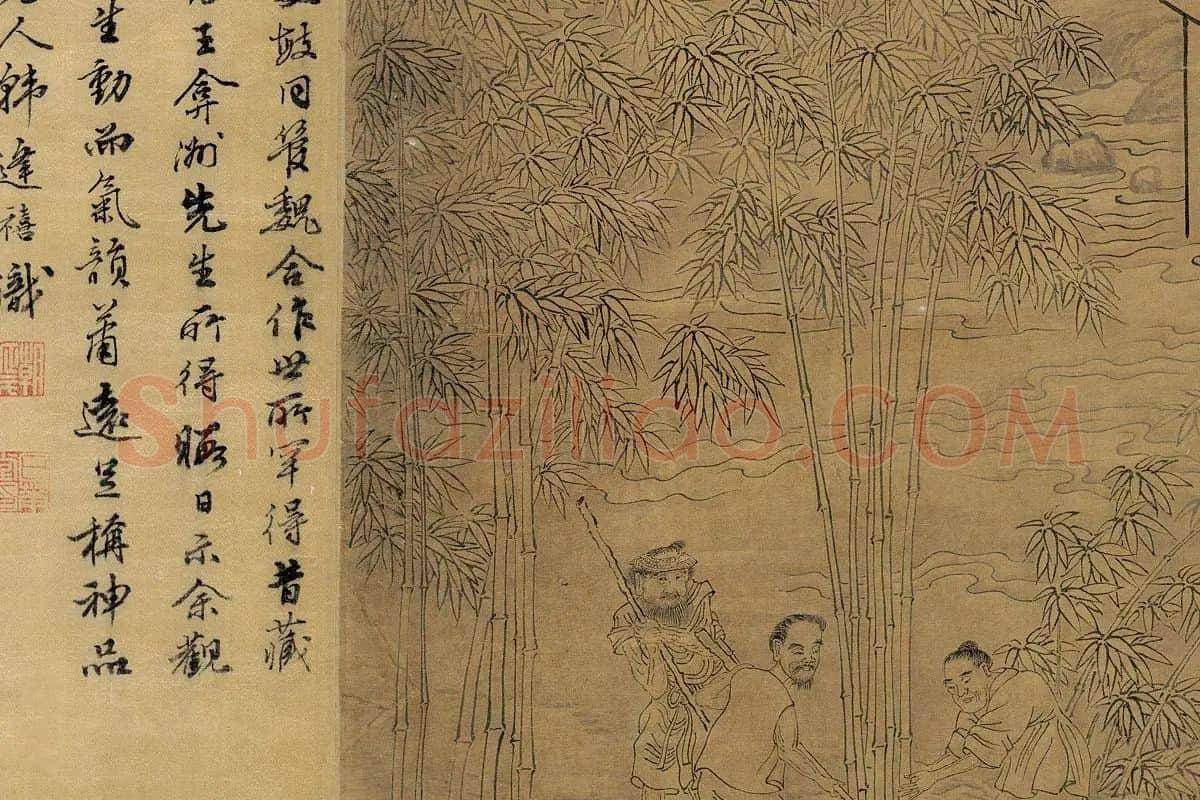 敏同管魏合作世所罕得昔藏
王弇洲先生所得暇日示余觀
生動而氣韻蕭遠足稱神品
人韓逢禧識
Shufaziliao.COM